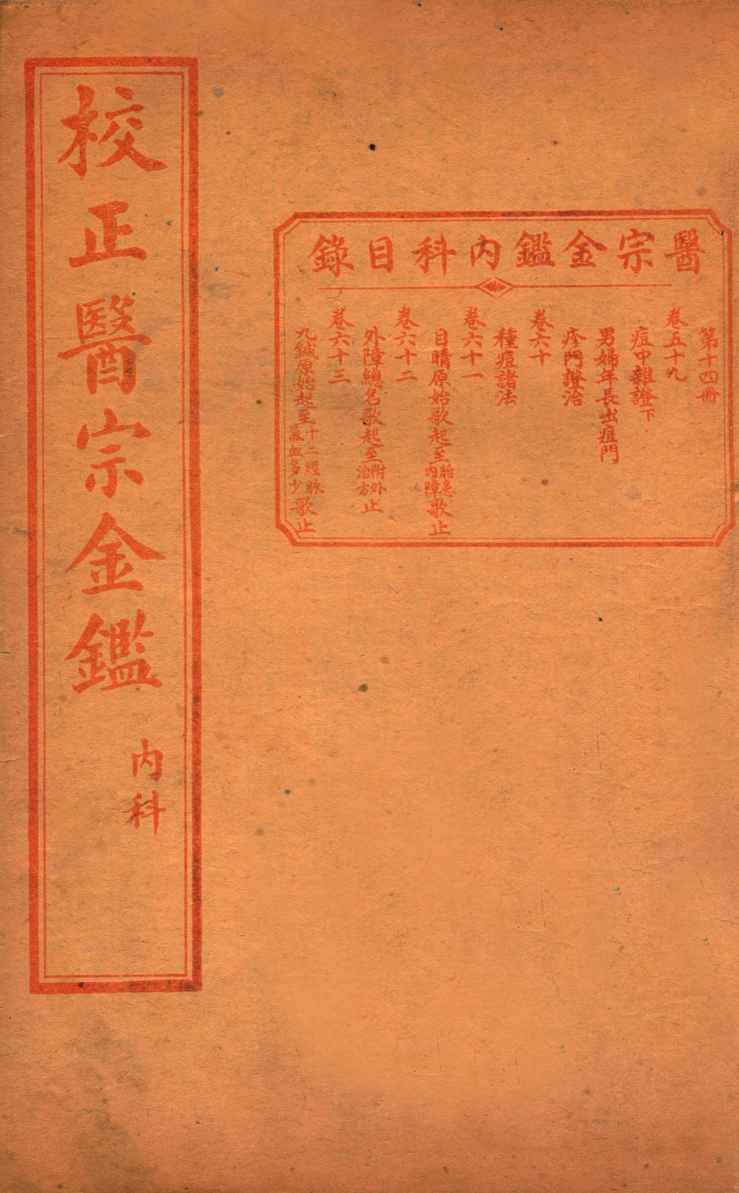 校正醫宗金鑑
內科
醫宗金鑑內科目錄
第十四冊
卷五十九
痘中雜證下
男婦年長出痘門
疹門證治
卷六十
種痘諸法
卷六十一
目睛原始歌起至內障歌止
卷六十二
外障總名歌起至附外治方止
卷六十三
九鍼原始起至十二經脈氣血多少歌止